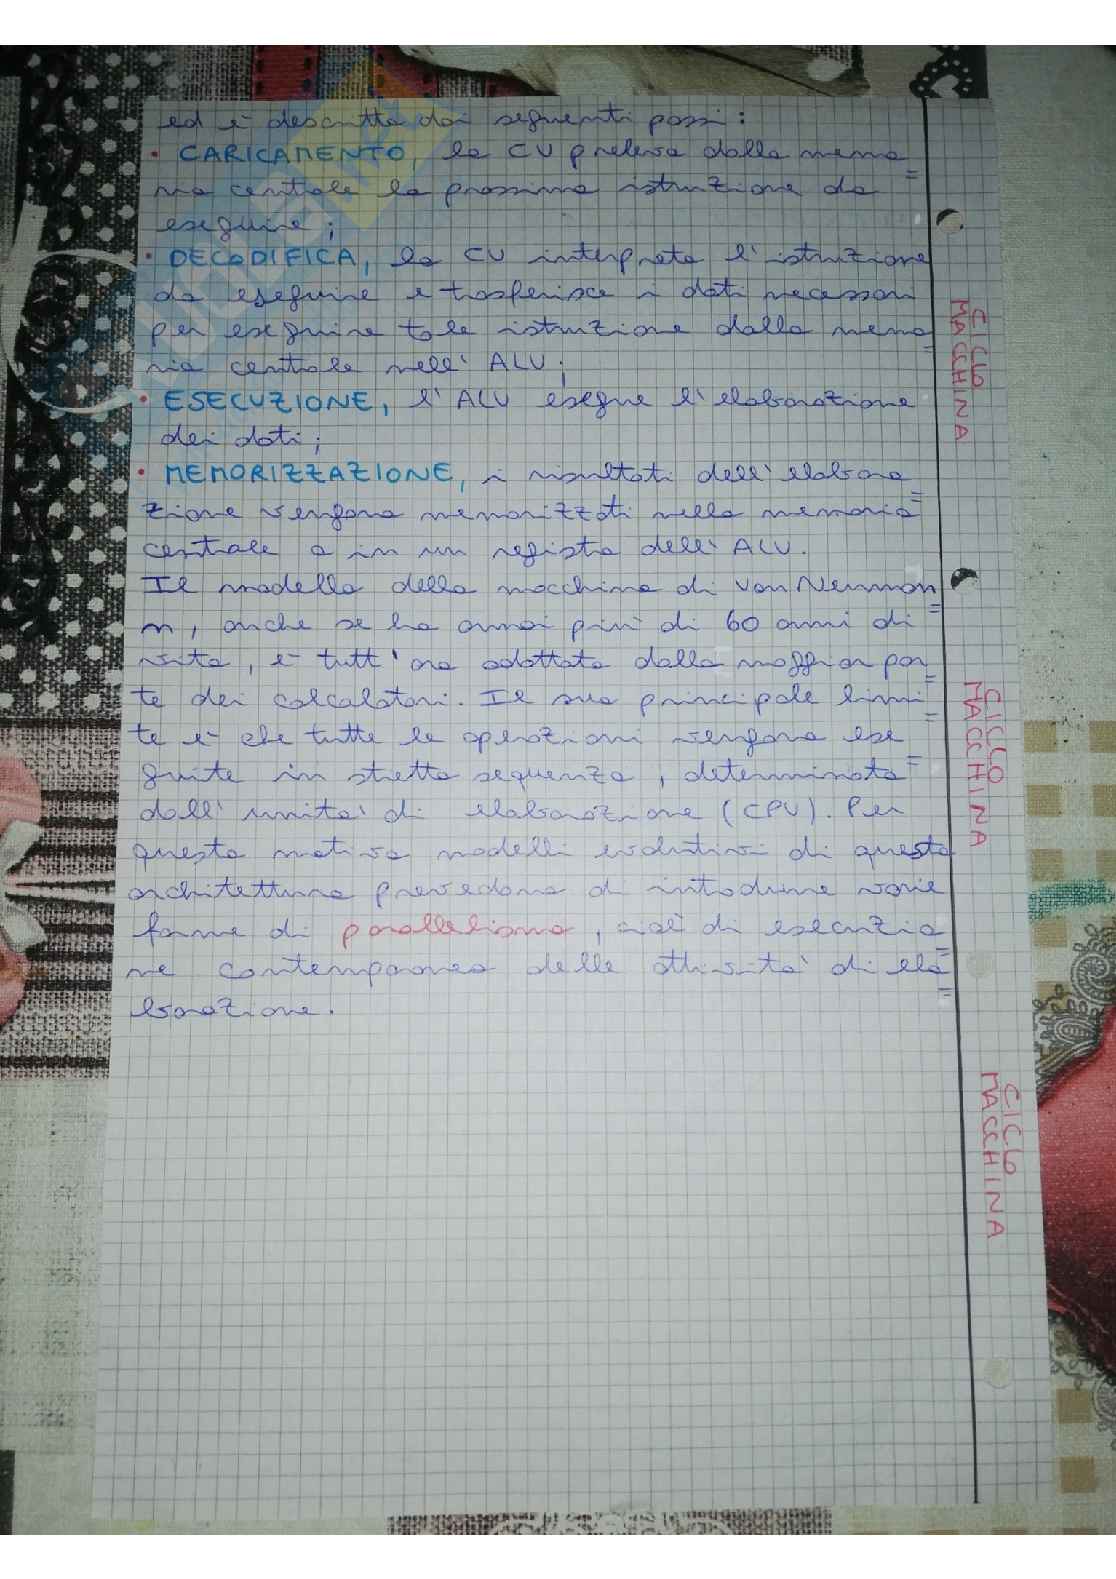 ed è descritta dai seguenti passi:
• CARICAMENTO, la CU preleva dalla memo=
ria centrale la prossima istruzione da
eseguire;
• DECODIFICA, la CU interpreta l'istruzione
da eseguire e trasferisce i dati necessari
per eseguire tale istruzione dalla memo=
ria centrale nell'ALU;
• ESECUZIONE, l'ALU esegue l'elaborazione
dei dati;
• MEMORIZZAZIONE, i risultati dell'elabora=
zione vengono memorizzati nella memoria
centrale o in un registro dell'ALU.
Il modello della macchina di Von Neuman=
n, anche se ha ormai più di 60 anni di
vita, è tutt'ora adottato dalla maggior par=
te dei calcolatori. Il suo principale limi=
te è che tutte le operazioni vengono ese=
guite in stretta sequenza, determinata
dall'unità di elaborazione (CPU). Per
questo motivo modelli evolutivi di questa
architettura prevedono di introdurre varie
forme di parallelismo, cioè di esecuzio=
ne contemporanea delle attività di ela=
borazione.
CICLO
MACCHINA
CICLO
MACCHINA
CICLO
MACCHINA